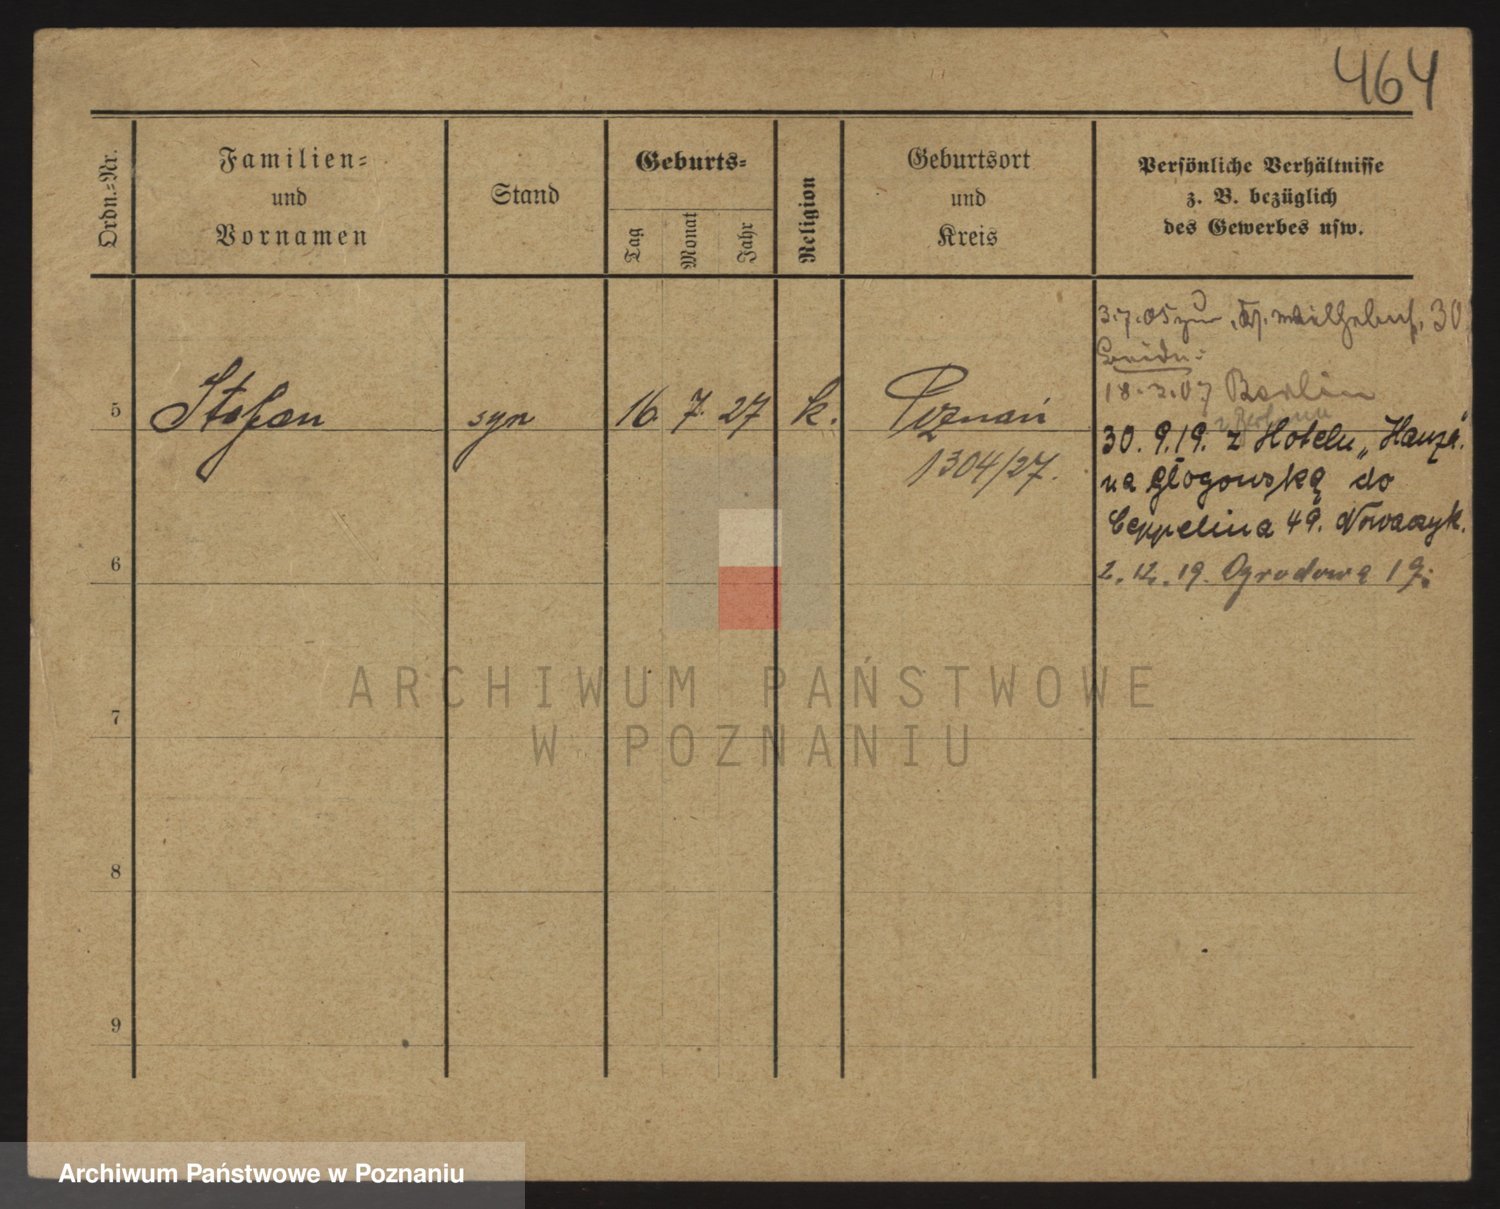 464
Ordn.-Nr.
Familien-
und
Vornamen
Stand
Geburts-
Tag
Monat
Jahr
Religion
Geburtsort
und
Kreis
Persönliche Verhältnisse
z. B. bezüglich
des Gewerbes usw.
3.7.05 zur 30
18.3.07 Berlin
5 Stefan syn 16. 7. 27 k. Poznań
1304/27.
30. 9.19. z Hotelu „Hanza"
na Głogowską do
Ceppelina 49. Nowaczyk.
2. 12. 19. Ogrodowa 19.
6
7
8
9
ARCHIWUM PAŃSTWOWE
W POZNANIU
Archiwum Państwowe w Poznaniu